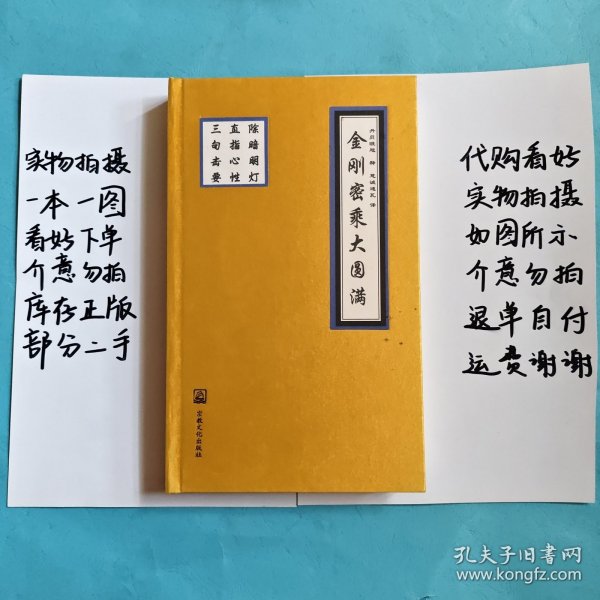 实物拍摄
一本一图
看好下单
介意勿拍
库存正版
部分二手
除暗明灯
直指心性
三句击要
金刚密乘大圆满
宗教文化出版社
代购看好
实物拍摄
如图所示
介意勿拍
退单自付
运费谢谢
孔夫子旧书网
www.kongfz.com